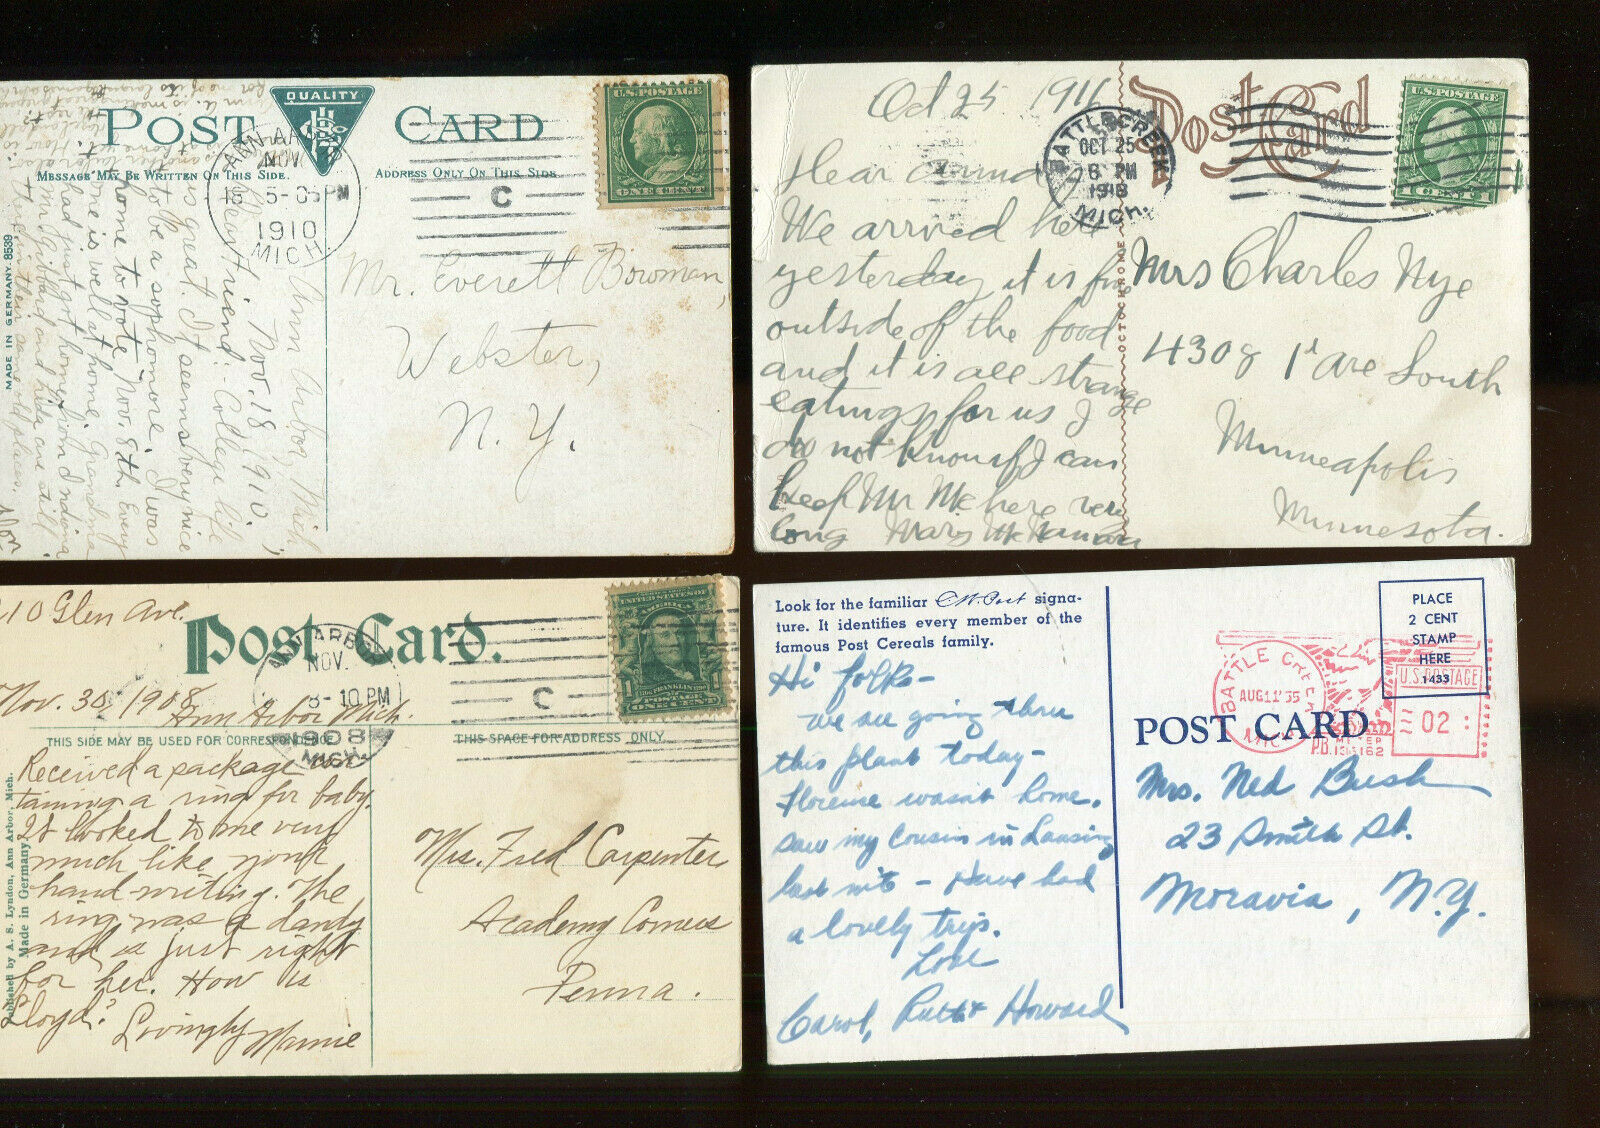 POST CARD
QUALITY
MESSAGE MAY BE WRITTEN ON THIS SIDE.
ADDRESS ONLY ON THIS SIDE
U.S. POSTAGE
ONE CENT
ANN ARBOR
NOV.
18 5-05 PM
1910
MICH.
C
MADE IN GERMANY. 8539
Ann Arbor, Mich.,
Nov. 18, 1910.
Dear Friend:- College life
is great. It seems very nice
to be a sophomore. I was
home to vote, Nov. 8th. Every
one is well at home. Grandma
had just got home from Indiana
Mr. Everett Bowman,
Webster,
N. Y.
Oct 25 191
Post Card
BATTLE CREEK
OCT 25
6 PM
1918
MICH.
U.S. POSTAGE
1 CENT 1
OCTOCHROME
Dear Anna
We arrived here
yesterday it is fine
outside of the food
and it is all strange
eatings for us I
do not know if I can
keep Mr Mc here very
long Mary McNamara
Mrs Charles Nye
4308 1st Ave South
Minneapolis
Minnesota.
10 Glen Ave.
Post Card.
ANN ARBOR
NOV.
8-10 PM
1908
MICH.
C
UNITED STATES OF AMERICA
FRANKLIN
POSTAGE
ONE CENT
Nov. 30, 1908
Ann Arbor Mich.
THIS SIDE MAY BE USED FOR CORRESPONDENCE
THIS SPACE FOR ADDRESS ONLY
Published by A. S. Lyndon, Ann Arbor, Mich.
Made in Germany
Received a package con
taining a ring for baby.
It looked to me very
much like your
hand writing. The
ring was a dandy
and is just right
for her. How is
Lloyd?
Lovingly Mamie
Mrs. Fred Carpenter
Academy Corners
Penna.
Look for the familiar C.W. Post signa-
ture. It identifies every member of the
famous Post Cereals family.
PLACE
2 CENT
STAMP
HERE
1433
BATTLE CREEK
AUG 11 '55
MICH.
U.S. POSTAGE
02
METER
P.B.
POST CARD
Hi folks-
We are going thru
this plant today-
Florence wasn't home.
saw my cousin in Lansing
last nite - Have had
a lovely trip.
Love
Carol, Ruth & Howard
Mrs. Ned Bush
23 Smith St.
Moravia, N.Y.